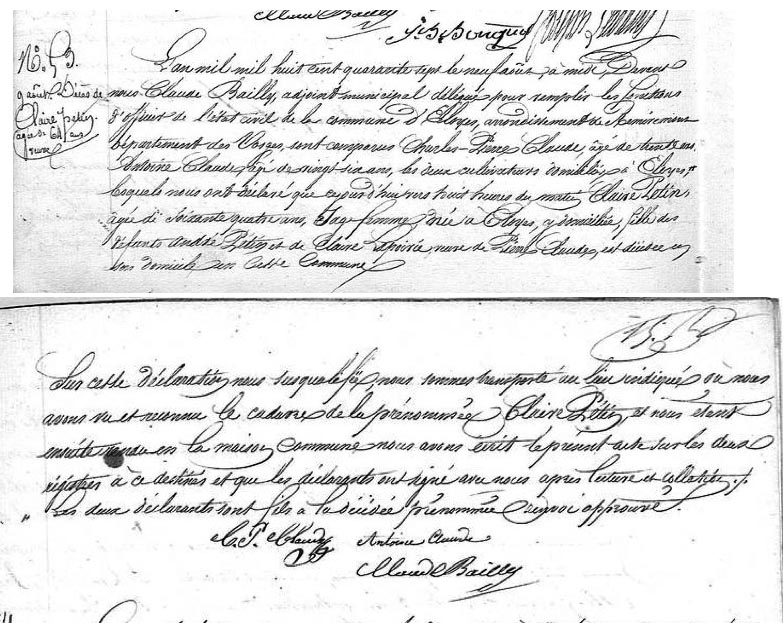 Claude Bailly
J. B. Bouquet
N°. 53.
9 août. Décès de
Claire Petin
agée de 64 ans
veuve
L'an mil mil huit cent quarante sept le neuf août, à midi, Devant
nous Claude Bailly, adjoint municipal délégué pour remplir les fonctions
d'officier de l'état civil de la commune d'Eloyes, arrondissement de Remiremont
département des Vosges, sont comparus Charles Pierre Claude, agé de trente ans
Antoine Claude, agé de vingt six ans, les deux cultivateurs domiciliés à Eloyes,
lesquels nous ont déclaré que cejourd'hui vers huit heures du matin, Claire Petin,
agée de soixante quatre ans, sage femme, née à Eloyes, y domiciliée, fille des
défunts André Petin et de Claire veuve de Pierre Claude, est décédée en
son domicile en cette Commune
Sur cette déclaration nous susqualifié, nous sommes transporté au lieu indiqué où nous
avons vu et reconnu le cadavre de la prénommée Claire Petin, et nous étant
ensuite rendu en la maison Commune nous avons écrit le présent acte sur les deux
régistres à ce destinés et que les déclarants ont signé avec nous après lecture et collation ./.
Les deux déclarants sont fils à la décédée prénommée renvoi approuvé.
C. P. Claude Antoine Claude
Claude Bailly